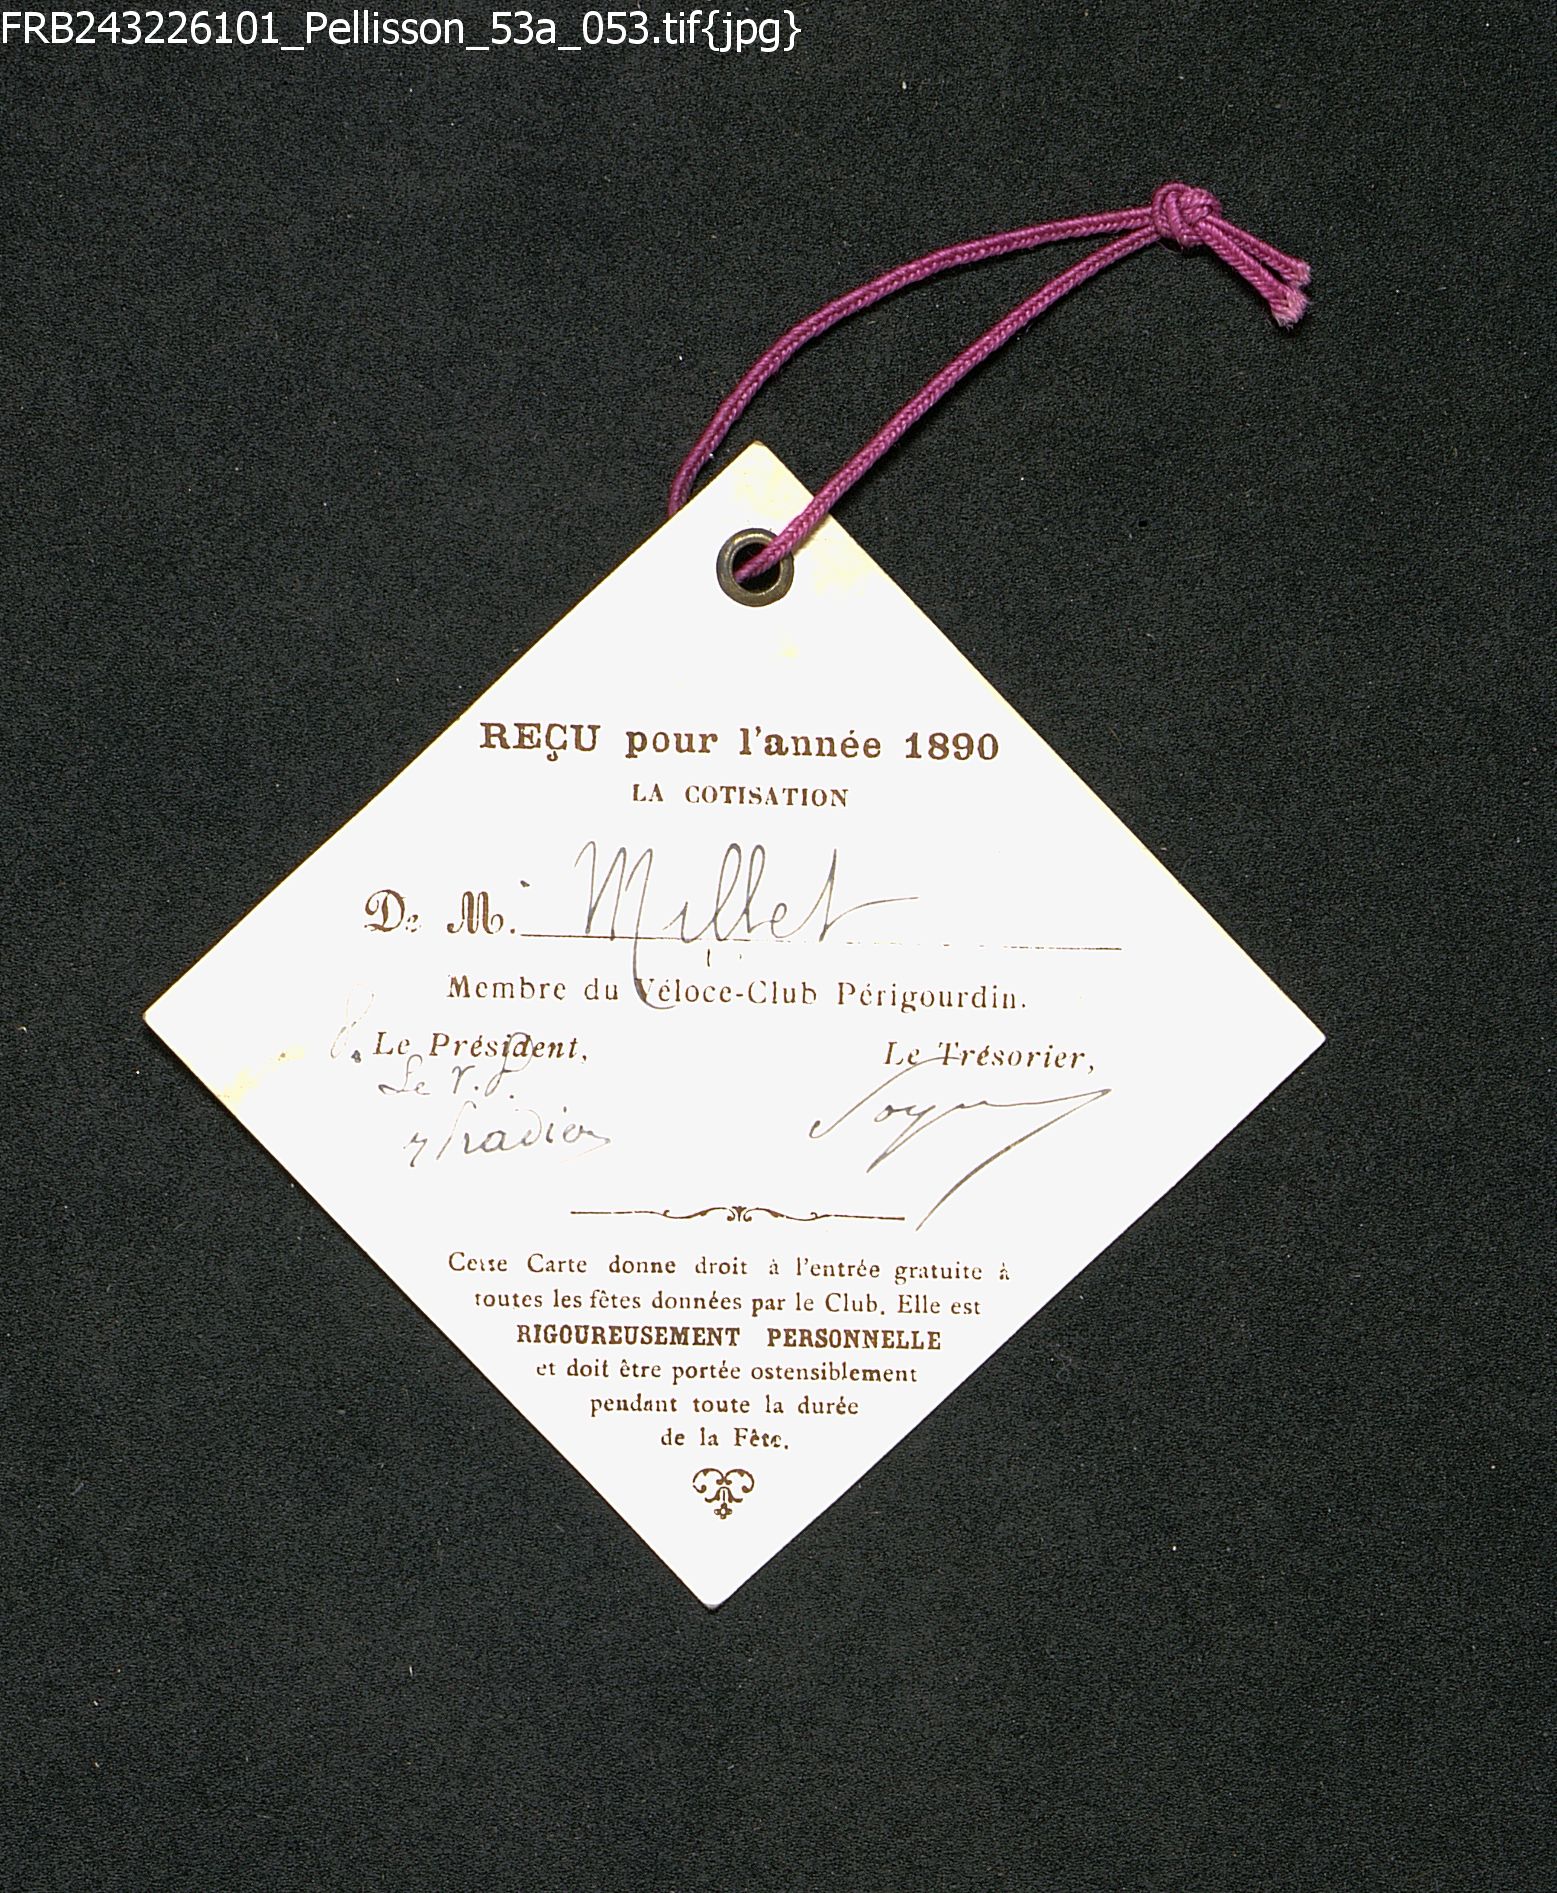 FRB243226101_Pellisson_53a_053.tif{jpg}
REÇU pour l'année 1890
LA COTISATION
De M. Millet
Membre du Véloce-Club Périgourdin.
Le Président,
Le Trésorier,
Le V. P.
Cette Carte donne droit à l'entrée gratuite à
toutes les fêtes données par le Club. Elle est
RIGOUREUSEMENT PERSONNELLE
et doit être portée ostensiblement
pendant toute la durée
de la Fête.